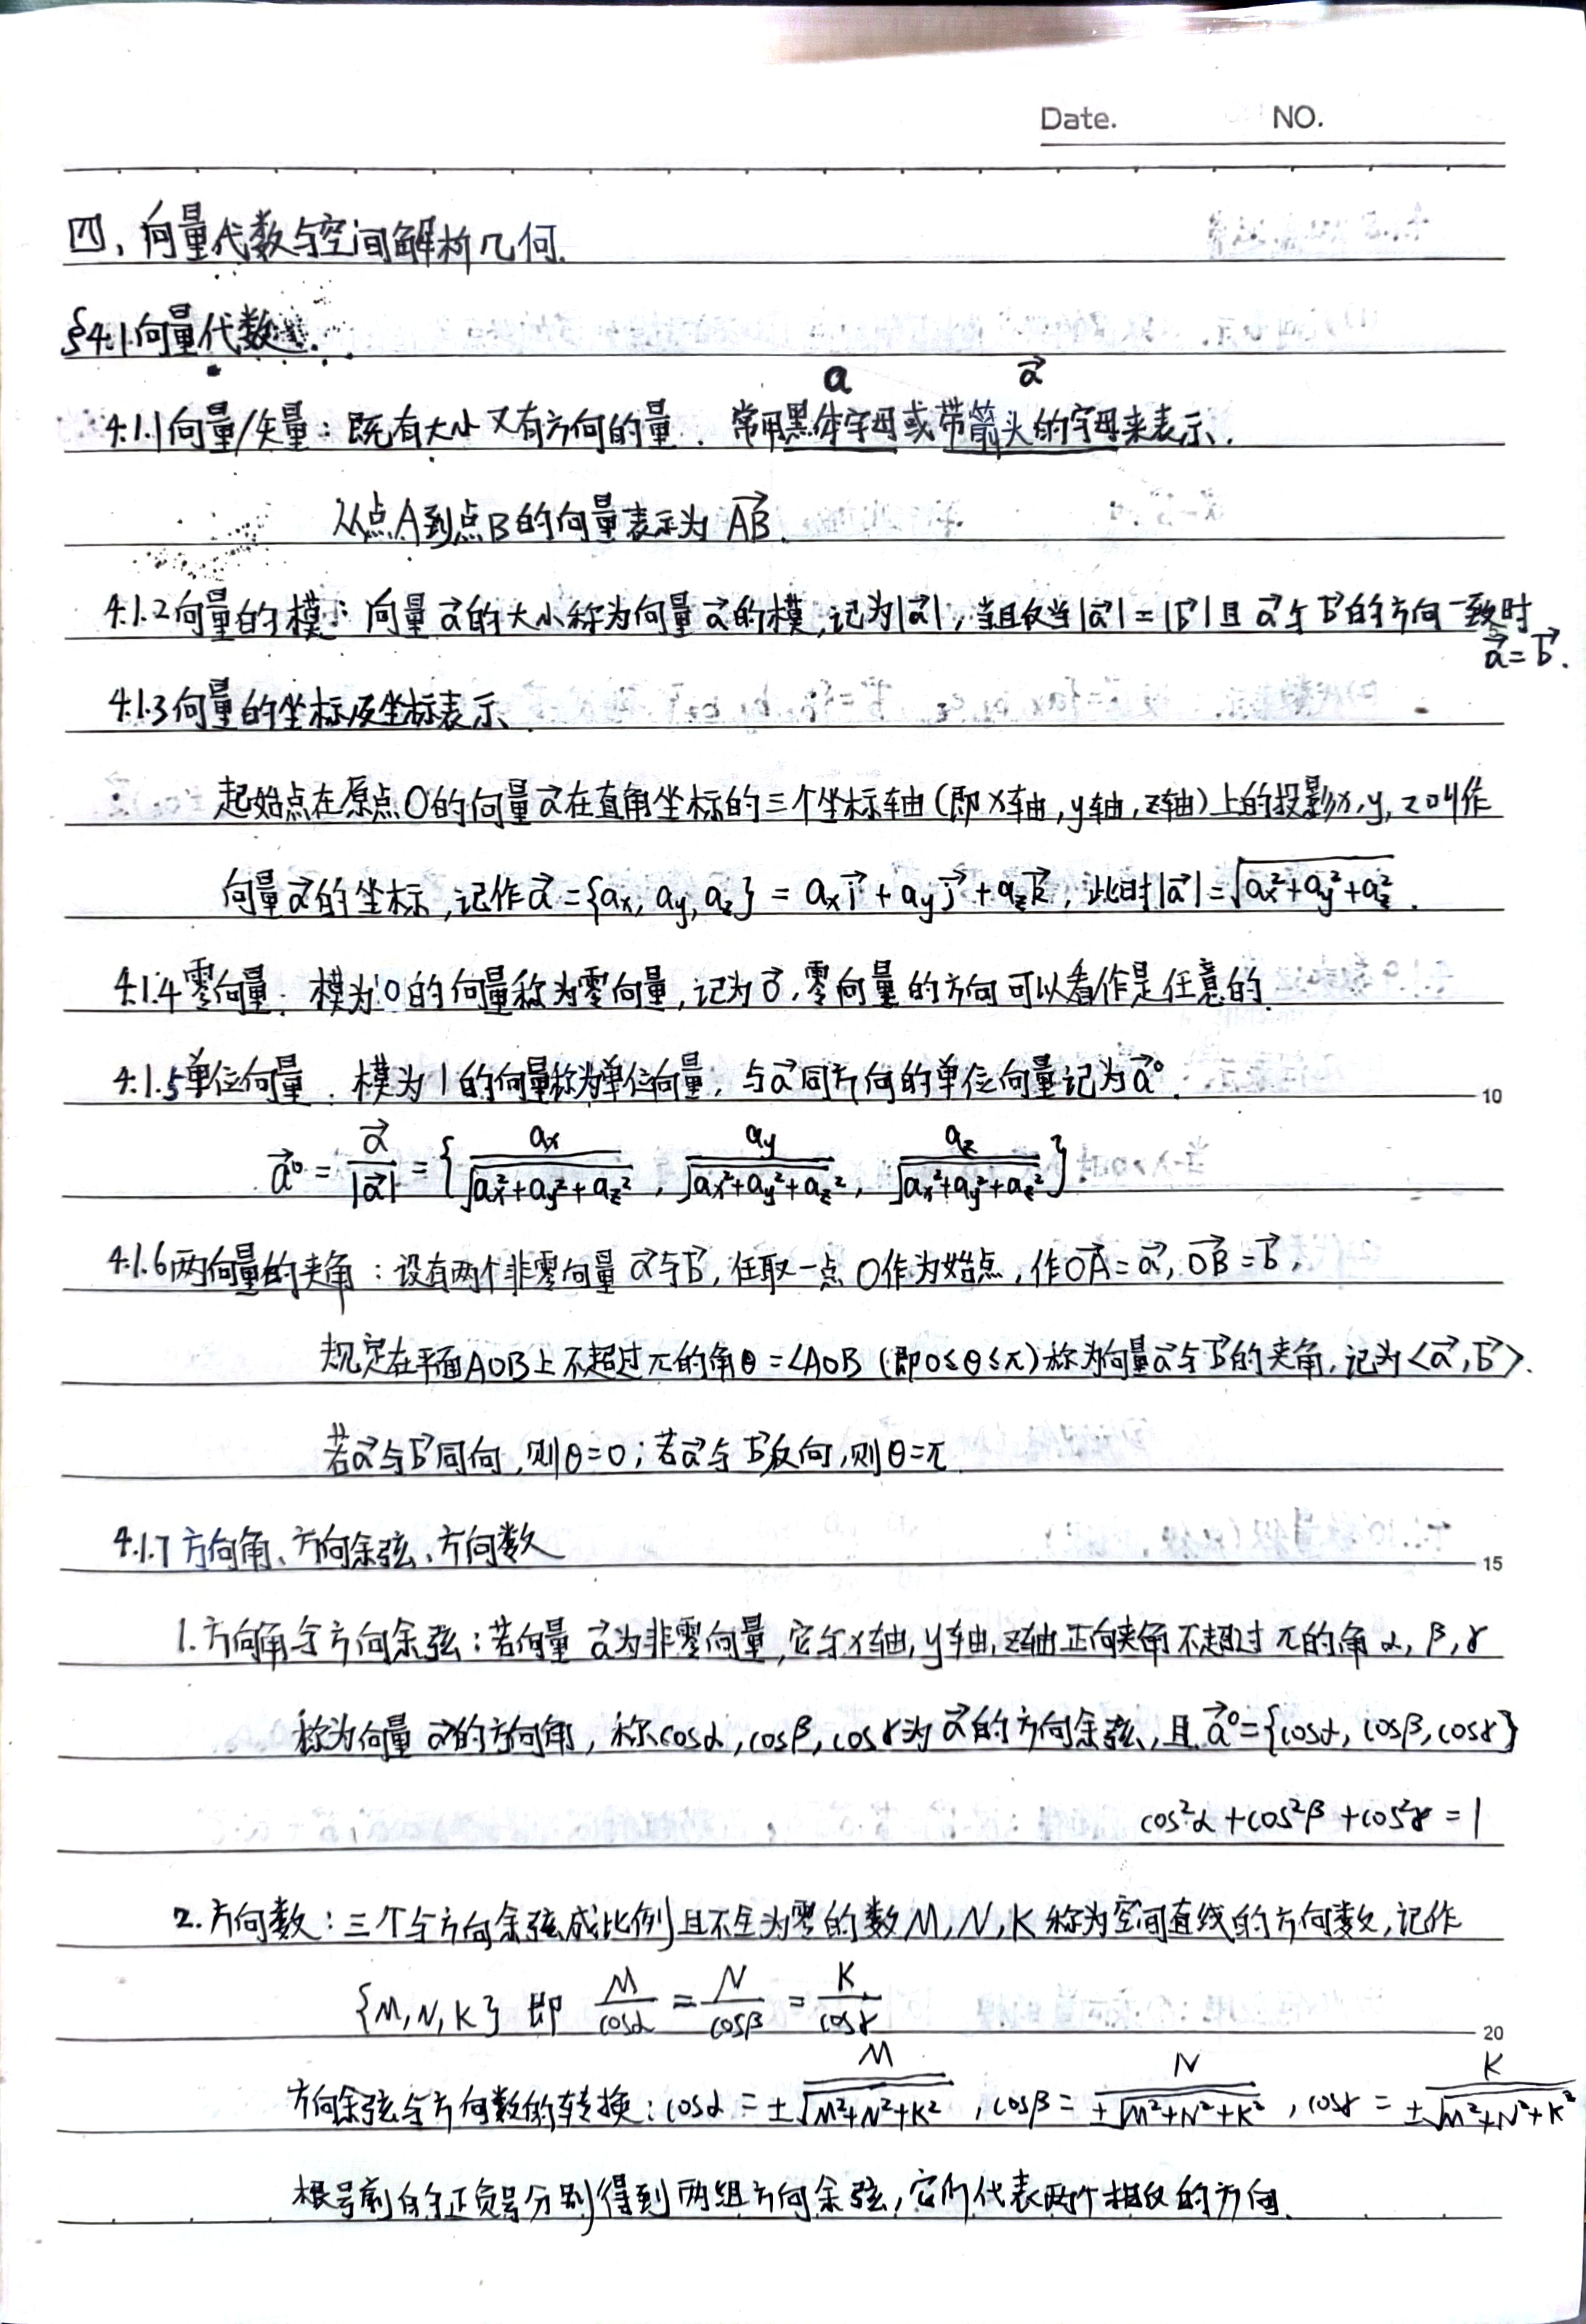 Date. NO.
四、向量代数与空间解析几何.
§4.1向量代数.
a  \vec{a}
4.1.1向量/矢量：既有大小又有方向的量. 常用黑体字母或带箭头的字母来表示.
从点A到点B的向量表示为 \vec{AB}.
4.1.2向量的模：向量\vec{a}的大小称为向量\vec{a}的模,记为|\vec{a}|，当且仅当|\vec{a}|=|\vec{b}|且\vec{a}与\vec{b}的方向一致时
\vec{a}=\vec{b}.
4.1.3向量的坐标及坐标表示.
起始点在原点O的向量\vec{a}在直角坐标的三个坐标轴(即x轴,y轴,z轴)上的投影x,y,z叫作
向量\vec{a}的坐标,记作\vec{a}={a_x, a_y, a_z} = a_x\vec{i} + a_y\vec{j} + a_z\vec{k}，此时|\vec{a}|=\sqrt{a_x^2+a_y^2+a_z^2}.
4.1.4零向量：模为0的向量称为零向量,记为\vec{0},零向量的方向可以看作是任意的.
4.1.5单位向量：模为1的向量称为单位向量，与\vec{a}同方向的单位向量记为\vec{a}^0.
10
\vec{a}^0 = \frac{\vec{a}}{|\vec{a}|} = {\frac{a_x}{\sqrt{a_x^2+a_y^2+a_z^2}}, \frac{a_y}{\sqrt{a_x^2+a_y^2+a_z^2}}, \frac{a_z}{\sqrt{a_x^2+a_y^2+a_z^2}}}.
4.1.6两向量的夹角：设有两个非零向量\vec{a}与\vec{b},任取一点O作为始点,作\vec{OA}=\vec{a},\vec{OB}=\vec{b},
规定在平面AOB上不超过π的角θ=∠AOB(即0≤θ≤π)称为向量\vec{a}与\vec{b}的夹角,记为<\vec{a},\vec{b}>.
若\vec{a}与\vec{b}同向,则θ=0；若\vec{a}与\vec{b}反向,则θ=π.
4.1.7方向角、方向余弦、方向数
15
1.方向角与方向余弦：若向量\vec{a}为非零向量,它与x轴,y轴,z轴正向夹角不超过π的角α,β,γ
称为向量\vec{a}的方向角,称cosα,cosβ,cosγ为\vec{a}的方向余弦,且\vec{a}^0={cosα,cosβ,cosγ}
cos²α+cos²β+cos²γ=1
2.方向数：三个与方向余弦成比例且不全为零的数M,N,K称为空间直线的方向数,记作
{M,N,K} 即 \frac{M}{cosα}=\frac{N}{cosβ}=\frac{K}{cosγ}
20
方向余弦与方向数的转换：cosα=\frac{M}{±\sqrt{M²+N²+K²}},cosβ=\frac{N}{±\sqrt{M²+N²+K²}},cosγ=\frac{K}{±\sqrt{M²+N²+K²}}
根号前的正负号分别得到两组方向余弦,它们代表两个相反的方向.